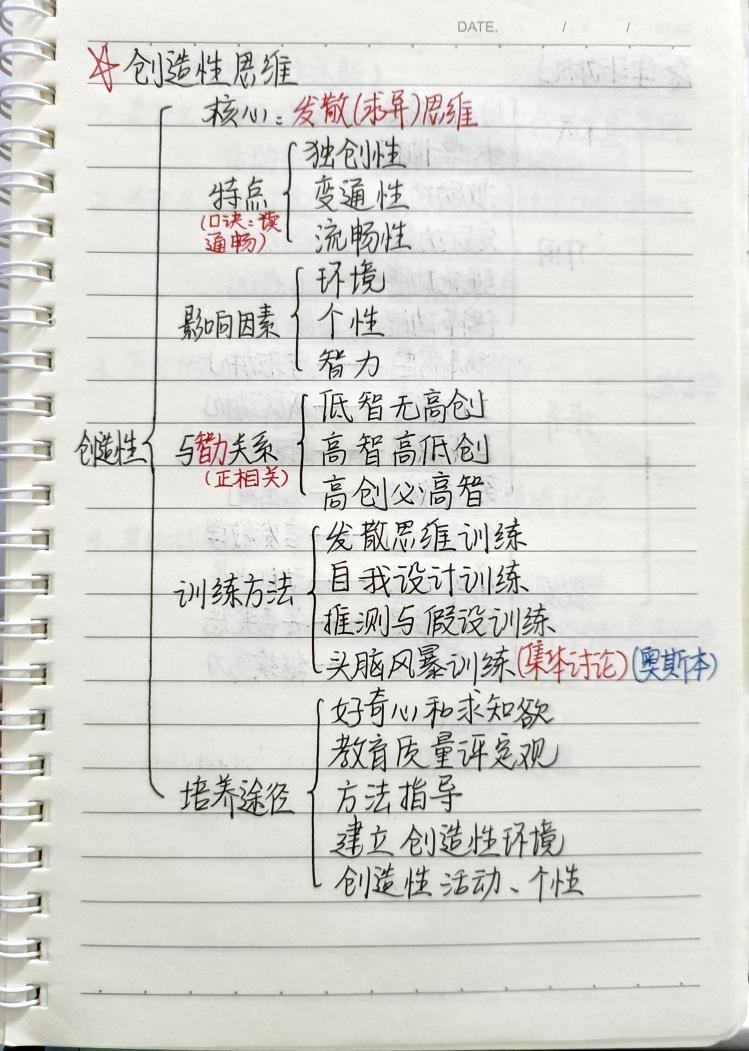 DATE. / /
☆创造性思维
核心：发散(求异)思维
独创性
特点
变通性
(口诀：读
通畅)
流畅性
环境
影响因素
个性
智力
低智无高创
创造性
与智力关系
高智高低创
(正相关)
高创必高智
发散思维训练
训练方法
自我设计训练
推测与假设训练
头脑风暴训练(集体讨论)(奥斯本)
好奇心和求知欲
教育质量评定观
培养途径
方法指导
建立创造性环境
创造性活动、个性